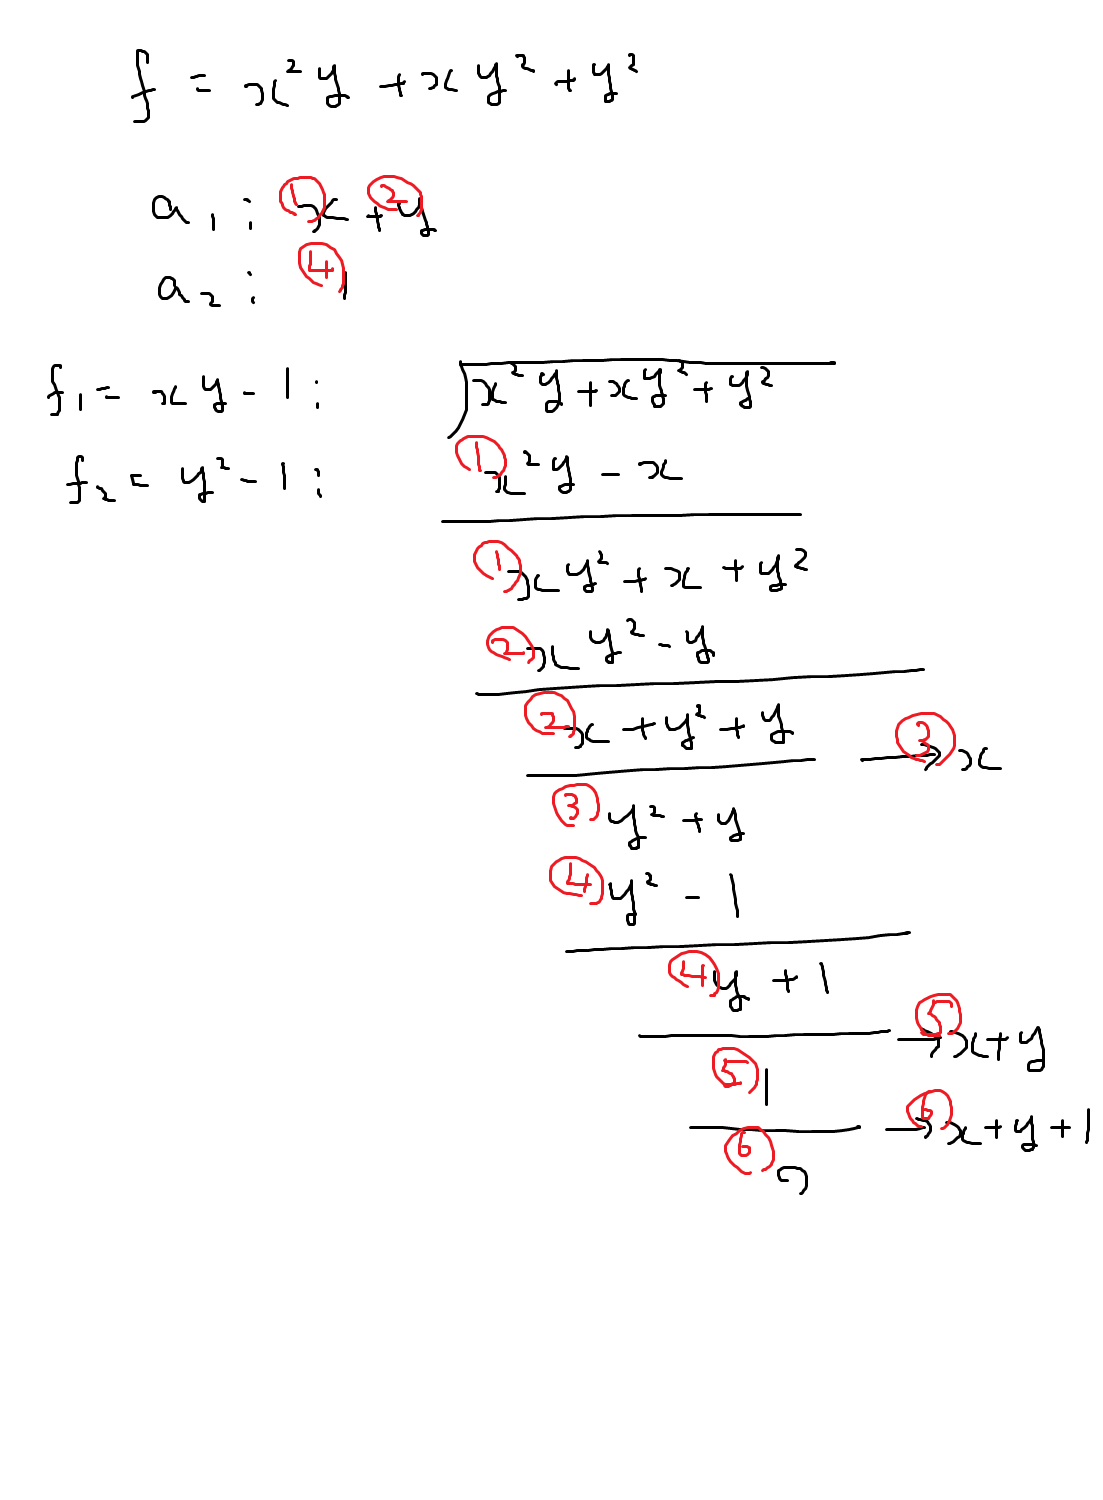 f = x²y + xy² + y²
a₁ : ① x + ② y
a₂ : ④ 1
f₁ = xy - 1 : x²y + xy² + y²
f₂ = y² - 1 : ① x²y - x
① xy² + x + y²
② xy² - y
② x + y² + y → ③ x
③ y² + y
④ y² - 1
④ y + 1
→ ⑤ x + y
⑤ 1
→ ⑥ x + y + 1
⑥